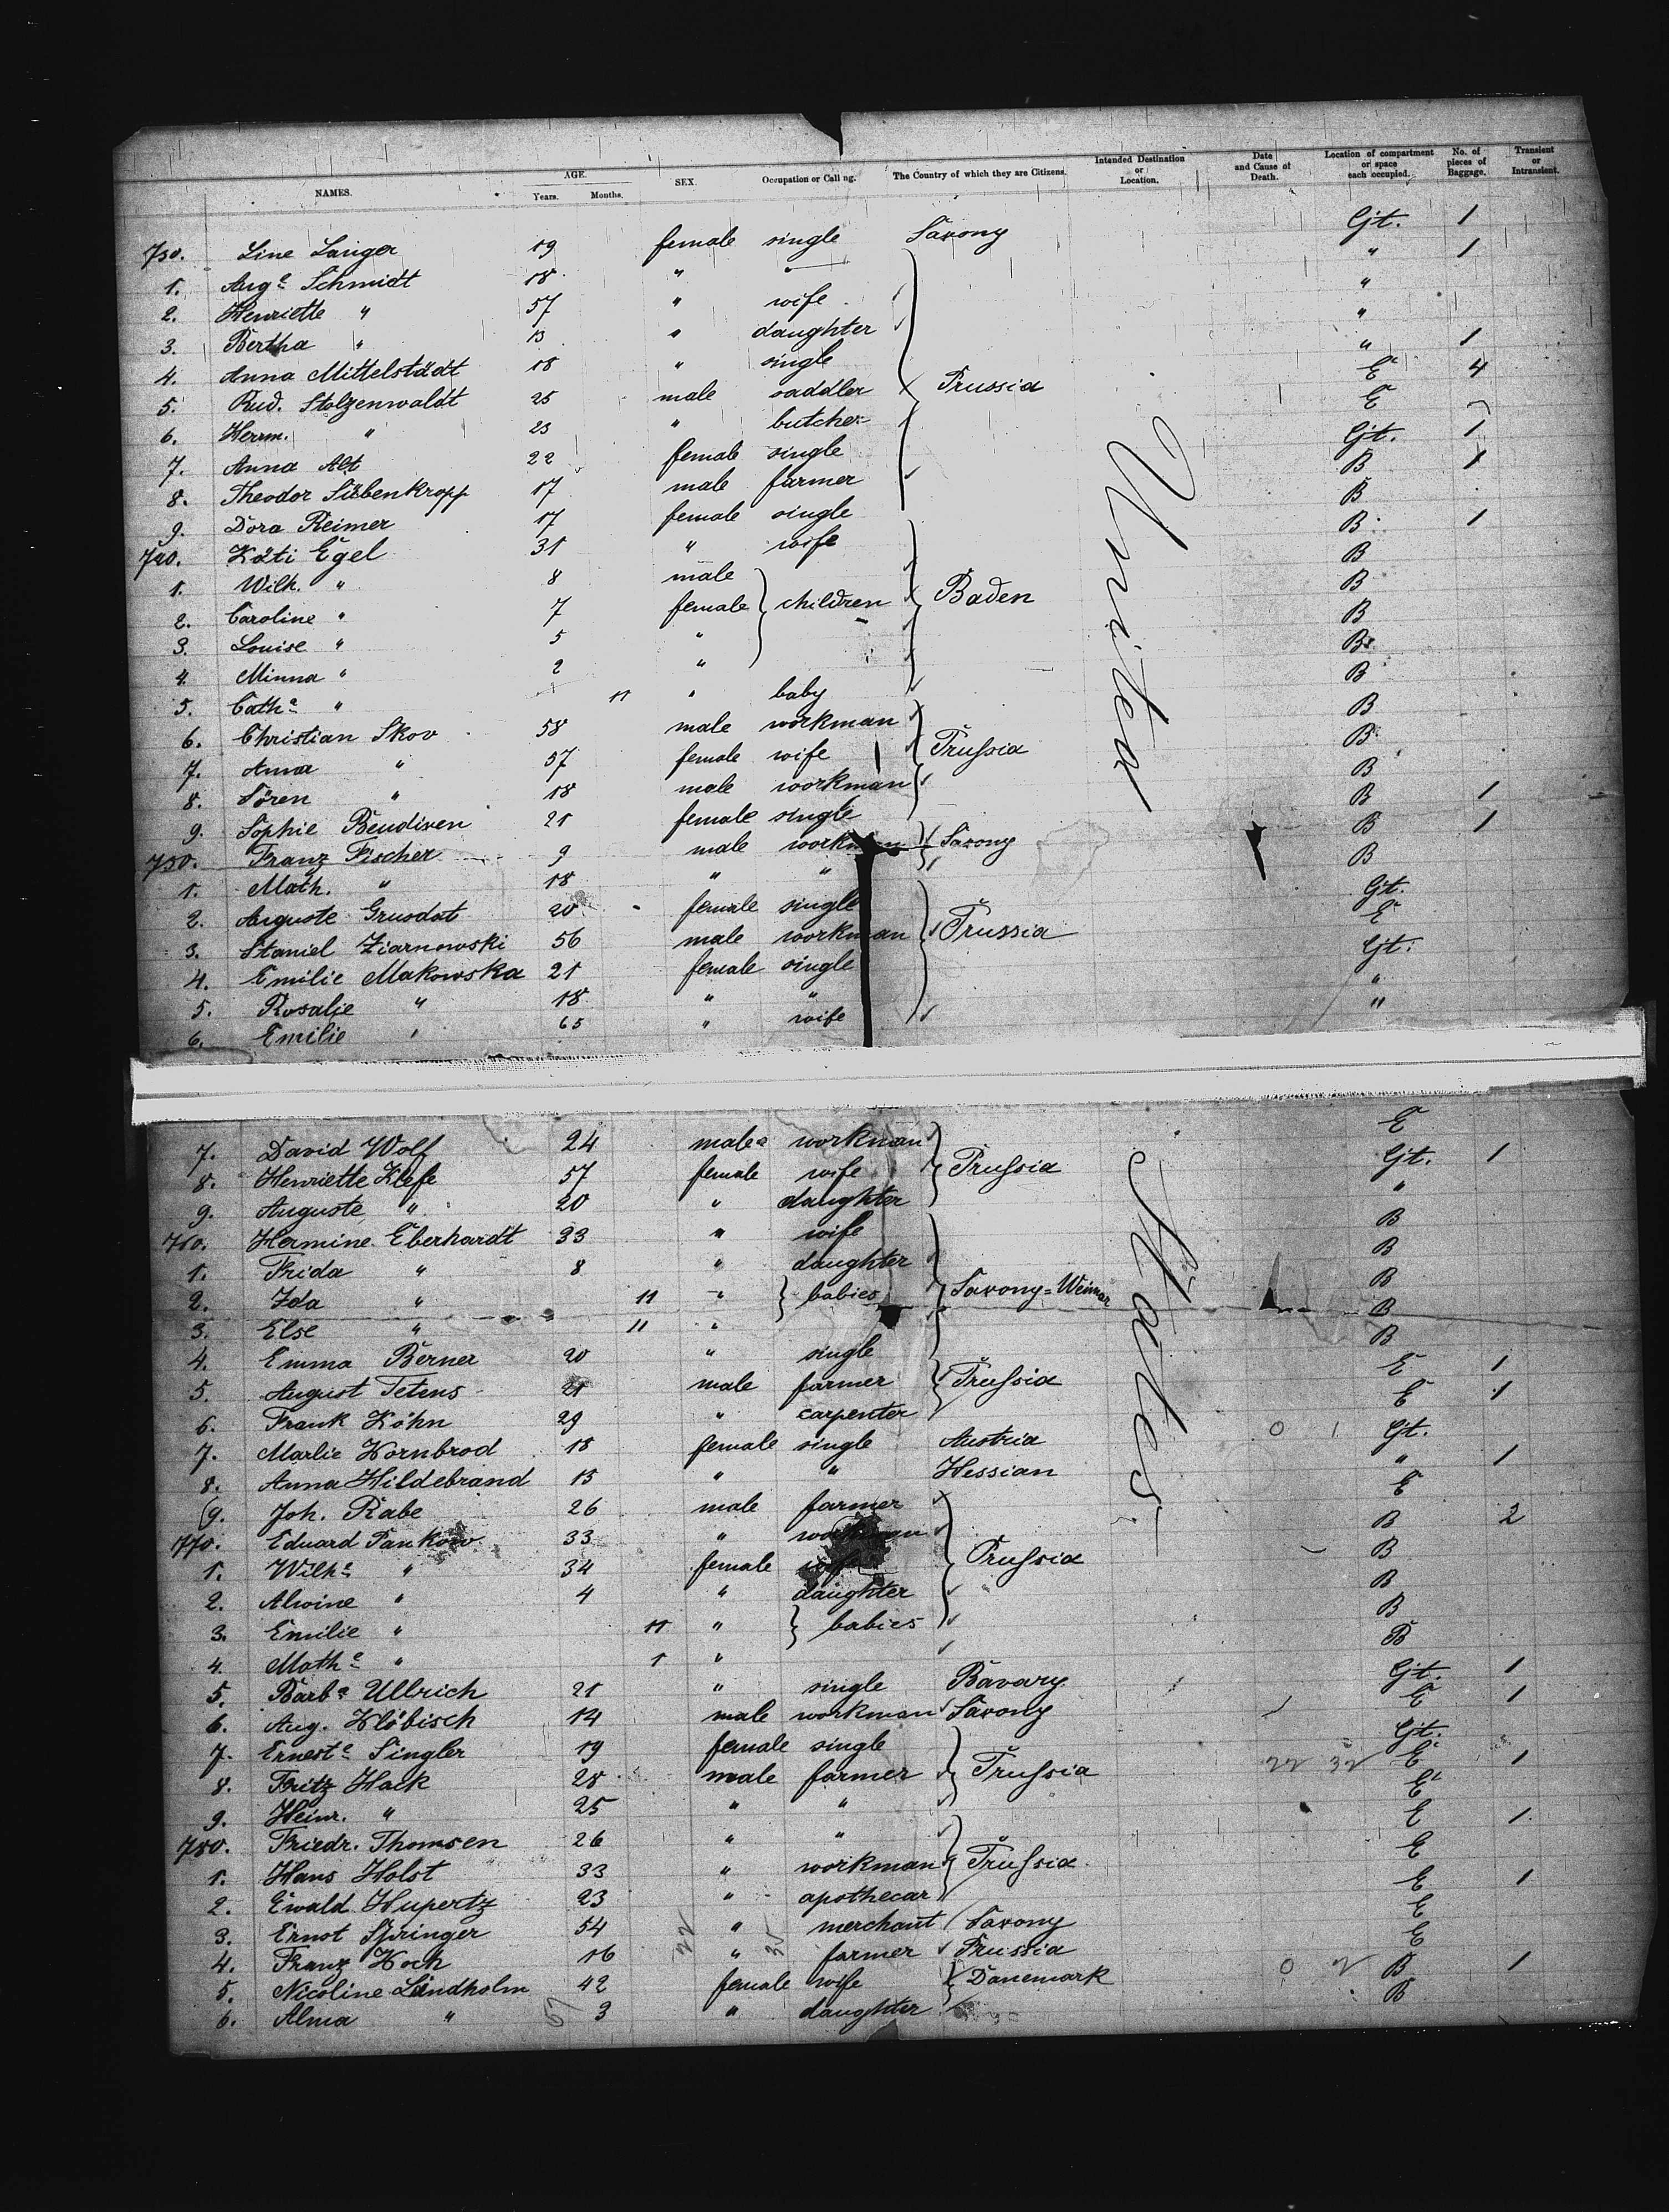 NAMES. AGE. Years. Months. SEX. Occupation or Calling. The Country of which they are Citizens. Intended Destination or Location. Date and Cause of Death. Location of compartment or space each occupied. No. of pieces of Baggage. Transient or Intransient.
730. Line Langer 19 female single Saxony Gjt. 1
1. Augᵉ Schmidt 18 " " " 1
2. Henriette " 57 " wife "
3. Bertha " 13 " daughter "
4. Anna Mittelstädt 18 " single " 1
5. Rud. Stolzenwaldt 25 male saddler Prussia E 4
6. Herrm. " 23 " butcher E
7. Anna Alt 22 female single Gjt. 1
8. Theodor Siebenkropp 17 male farmer B 1
9. Dora Reimer 17 female single B
740. Käti Egel 31 " wife B 1
1. Wilh. " 8 male B
2. Caroline " 7 female children Baden B
3. Louise " 5 " B
4. Minna " 2 " B
5. Cathᵉ " 11 " baby B
6. Christian Skov 58 male workman B
7. Anna " 57 female wife Prussia B
8. Sören " 18 male workman B
9. Sophie Bendixen 21 female single B 1
750. Franz Fischer 9 male workman Saxony B 1
1. Math. " 18 " " B
2. Auguste Grusdat 20 female single Gjt.
3. Staniel Ziarnowski 56 male workman Prussia E
4. Emilie Makowska 21 female single Gjt.
5. Rosalie " 18 " " "
6. Emilie " 65 " wife "
United
7. David Wolf 24 male workman E
8. Henriette Klefe 57 female wife Prussia Gjt. 1
9. Auguste " 20 " daughter "
760. Hermine Eberhardt 33 " wife B
1. Frida " 8 " daughter B
2. Ida " 11 " babies Saxony=Weimar B
3. Else " 11 " B
4. Emma Berner 20 " single B
5. August Tetens 21 male farmer Prussia E 1
6. Frank Köhn 29 " carpenter E 1
7. Marlie Kornbrod 18 female single Austria 0 1 Gjt.
8. Anna Hildebrand 15 " " Hessian " 1
9. Joh. Rabe 26 male farmer E
770. Eduard Pankow 33 " workman B 2
1. Wilhᵉ " 34 female wife Prussia B
2. Alwine " 4 " daughter B
3. Emilie " 11 " babies B
4. Mathᵉ " 1 " B
5. Barbᵃ Ullrich 21 " single Bavary Gjt. 1
6. Aug. Klöbisch 14 male workman Saxony E 1
7. Ernestᵉ Singler 19 female single Gjt.
8. Fritz Hack 28 male farmer Prussia 22 32 E 1
9. Heinr. " 25 " " E
780. Friedr. Thomsen 26 " " E 1
1. Hans Holst 33 " workman Prussia E
2. Ewald Hupertz 23 " apothecar E 1
3. Ernst Springer 54 " merchant Saxony E
4. Franz Hoch 16 " farmer Prussia E
5. Nicoline Lindholm 42 female wife Danemark 0 2 B 1
6. Alma " 3 " daughter B
States